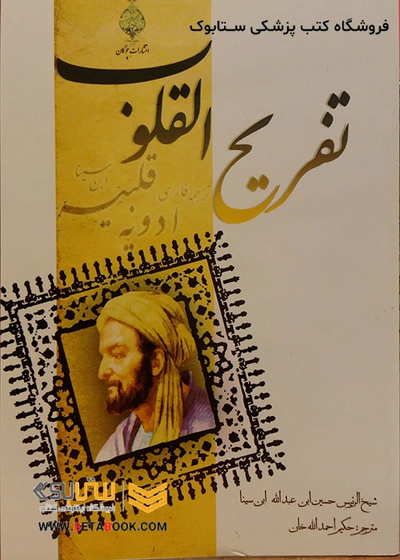 فروشگاه کتب پزشکی ستابوک
انتشارات چوگان
تفریح القلوب
ترجمه فارسی
ادویه قلبیه
ابن سینا
شیخ الرئیس حسین ابن عبدالله ابن سینا
مترجم: حکیم احمدالله خان
ستابوک
WWW.SETABOOK.COM